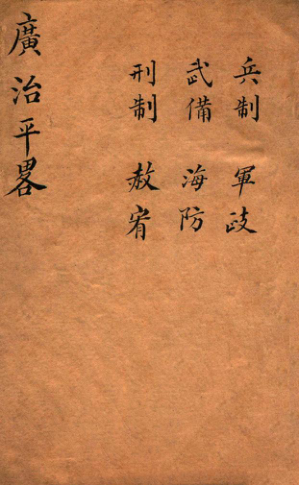 兵制　軍政
武備　海防
刑制　赦宥
廣治平畧